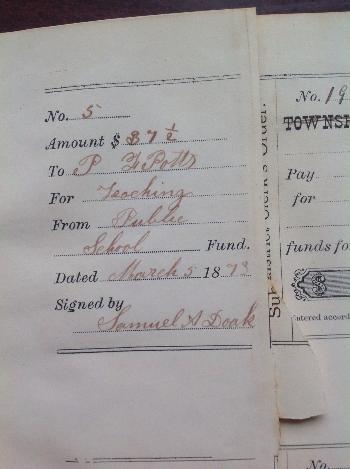 No. 5
Amount $ 37 ½
To P F Potts
For Teaching
From Public
School Fund.
Dated March 5 187
Signed by
Samuel A Doak
Sub-district Clerk's Order.
No. 19
TOWNSH
Pay
for
funds fo
Entered accord
No.